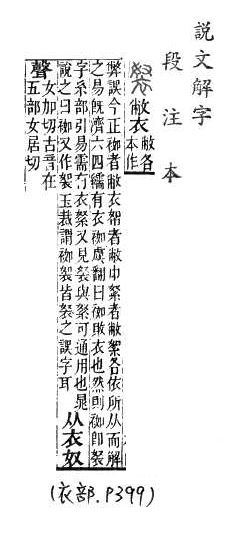 說文解字
段注本
敝衣敝各
本作
弊誤今正袽者敝衣帤者敝巾絮者敝絮各依所从而解
之易旣濟六四繻有衣袽虞翻曰袽敗衣也然則袽卽
字糸部引易需有衣絮又見與絮可通用也晁
說之曰袽又作玉裁謂袽皆之誤字耳从衣奴
聲女加切古音在
五部女居切
(衣部.P399)